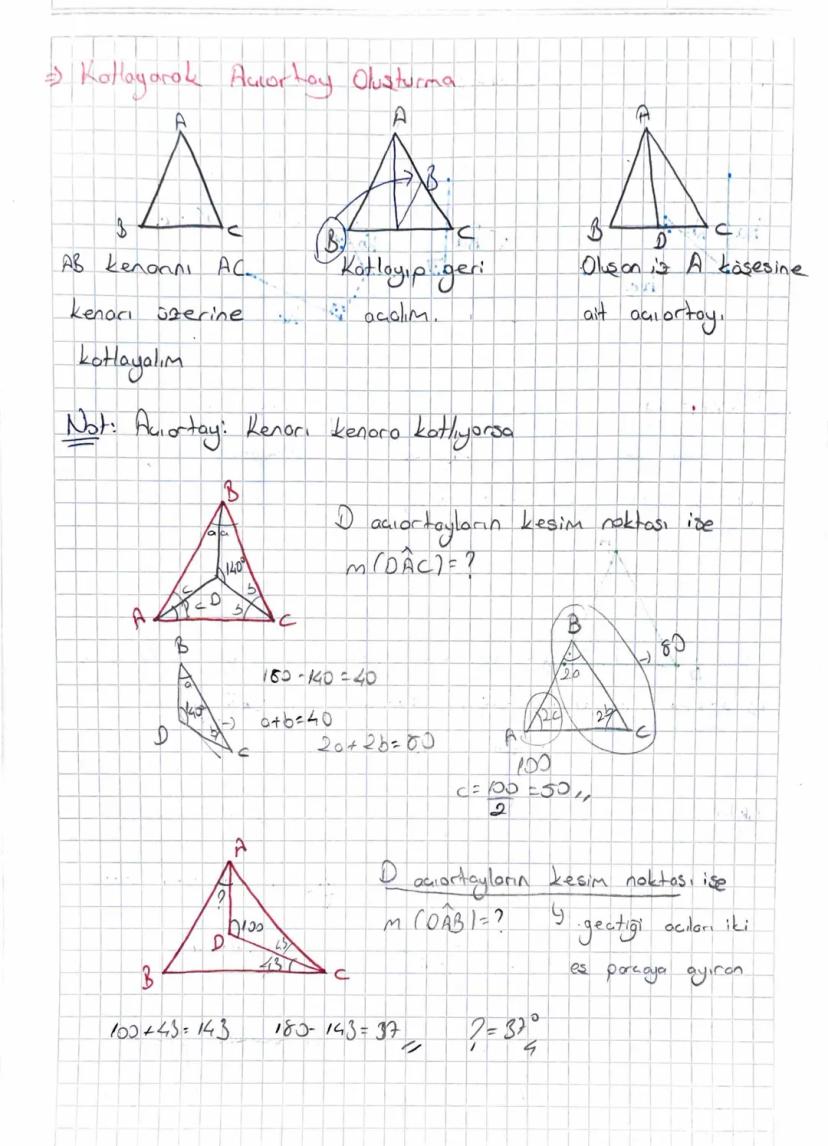 ⇒ Katlayarak Açıortay Oluşturma
A
A
A
B
C
B
B
C
B
D
C
AB kenarını AC
kenarı üzerine
katlayalım
Katlayıp geri
açalım.
Oluşan iz A köşesine
ait açıortay.
Not: Açıortay: Kenarı kenara katlıyorsa
B
a a
140°
c b
c D b
A C
D açıortayların kesim noktası ise
m(DÂC)=?
B
a
140°
D b
C
180-140=40
a+b=40
2a+2b=80
B
80
2a
2c 2b
A C
100
c=100/2=50,,
A
?
100
D
43
43
B C
D açıortayların kesim noktası ise
m(DÂB)=? ↳ geçtiği açıları iki
eş parçaya ayıran
100+43=143 180-143=37,, ?=37°